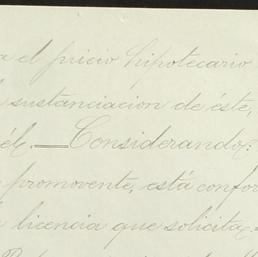 a el juicio hipotecario
sustanciacion de éste,
él.—Considerando:
promovente, está confor
licencia que solicita.